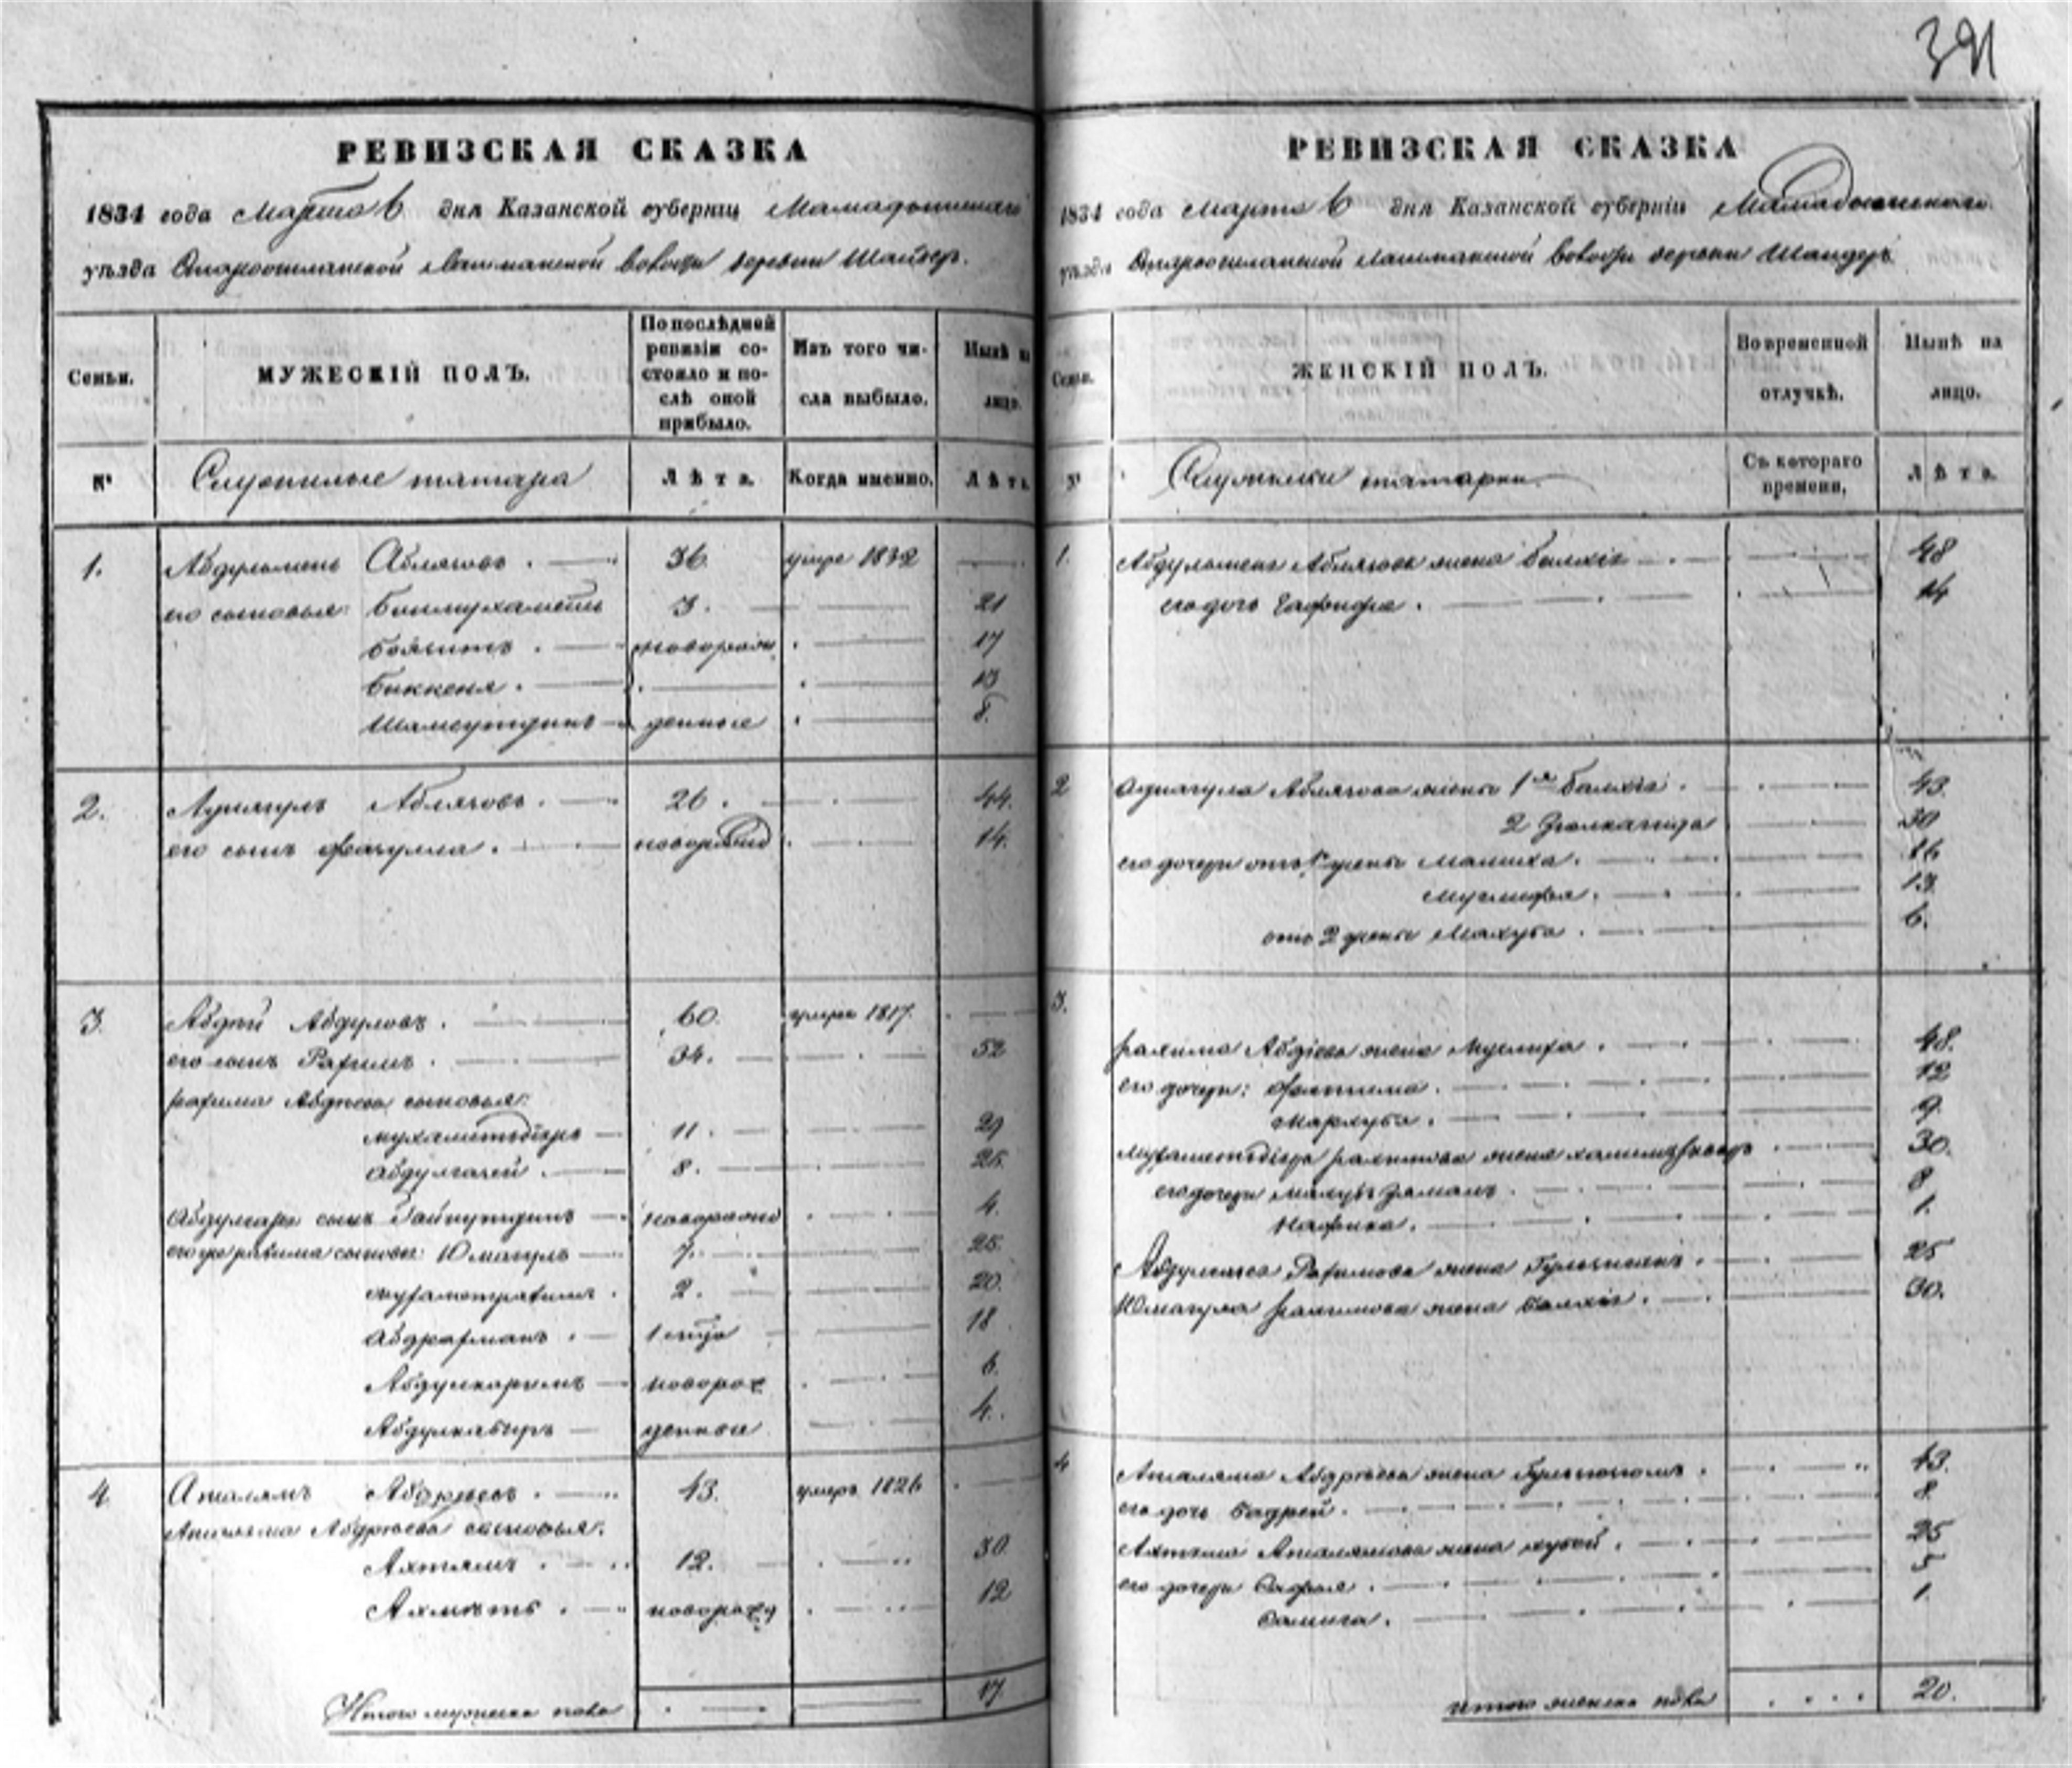 391
РЕВИЗСКАЯ СКАЗКА
1834 года Марта 6 дня Казанской губерніи Мамадышскаго
уѣзда Лашманской волости деревни Шандеръ.
Семьи.
МУЖЕСКІЙ ПОЛЪ.
По послѣдней ревизіи состояло и послѣ оной прибыло.
Изъ того числа выбыло.
Нынѣ на лицо.
№
Служилые татара
Лѣта.
Когда именно.
Лѣта.
1. Абдульменъ Аблязовъ. 36. умре 1832
его сыновья: Бикмухаметь 3. 21
Баязитъ. новорож 17
Биккеня. 13
Шамсутдинъ денные 8.
2. Аднагулъ Аблязовъ. 26. 44.
его сынъ Фазулла. новорожд 14.
3. Абдѣй Абдуловъ. 60. умре 1817.
его сынъ Рахимъ. 34. 52
Рахима Абдѣева сыновья:
Мухаметьдіяръ 11. 29
Абдулгазей. 8. 26.
сынъ Гайнутдинъ новорожд 4.
его же Рахима сыновья: Юмагулъ 7. 25.
Мухаметрахимъ. 2. 20.
Абдрахманъ. 18
Абдулкаримъ новорож 6.
Абдулкабиръ денные 4.
4. Аталямъ Абдѣевъ. 43. умеръ 1826
Аталяма Абдѣева сыновья.
Ахтямъ. 12. 30
Ахметь. новорожд 12
Итого мужеска пола 17
РЕВИЗСКАЯ СКАЗКА
1834 года Марта 6 дня Казанской губерніи Мамадышскаго
уѣзда Лашманской волости деревни Шандеръ
Семьи.
ЖЕНСКІЙ ПОЛЪ.
Во временной отлучкѣ.
Нынѣ на лицо.
№
Служилыя татарки
Съ котораго времени.
Лѣта.
1. Абдульмена Аблязова жена Балхія 48
его дочь Гафифа. 14
2 Аднагула Аблязова жены 1я Балхія. 43.
2 30
его дочери отъ 1 жены Малиха. 16
Муслифа. 13.
отъ 2 жены Махуба. 6.
3.
Рахима Абдіева жена Муслиха. 48.
его дочери: Фатима. 12
Мархуба. 9.
Мухаметьдіяра Рахимова жена 30.
его дочери 8
Нафика. 1.
Рахимова жена 25
Юмагула Рахимова жена Балхія. 30.
4 Аталяма Абдрѣева жена 43.
его дочь Бадрей. 8.
Ахтяма Аталямова жена Хубей. 25
его дочери Сафія. 5
Самига. 1.
Итого женска пола 20.